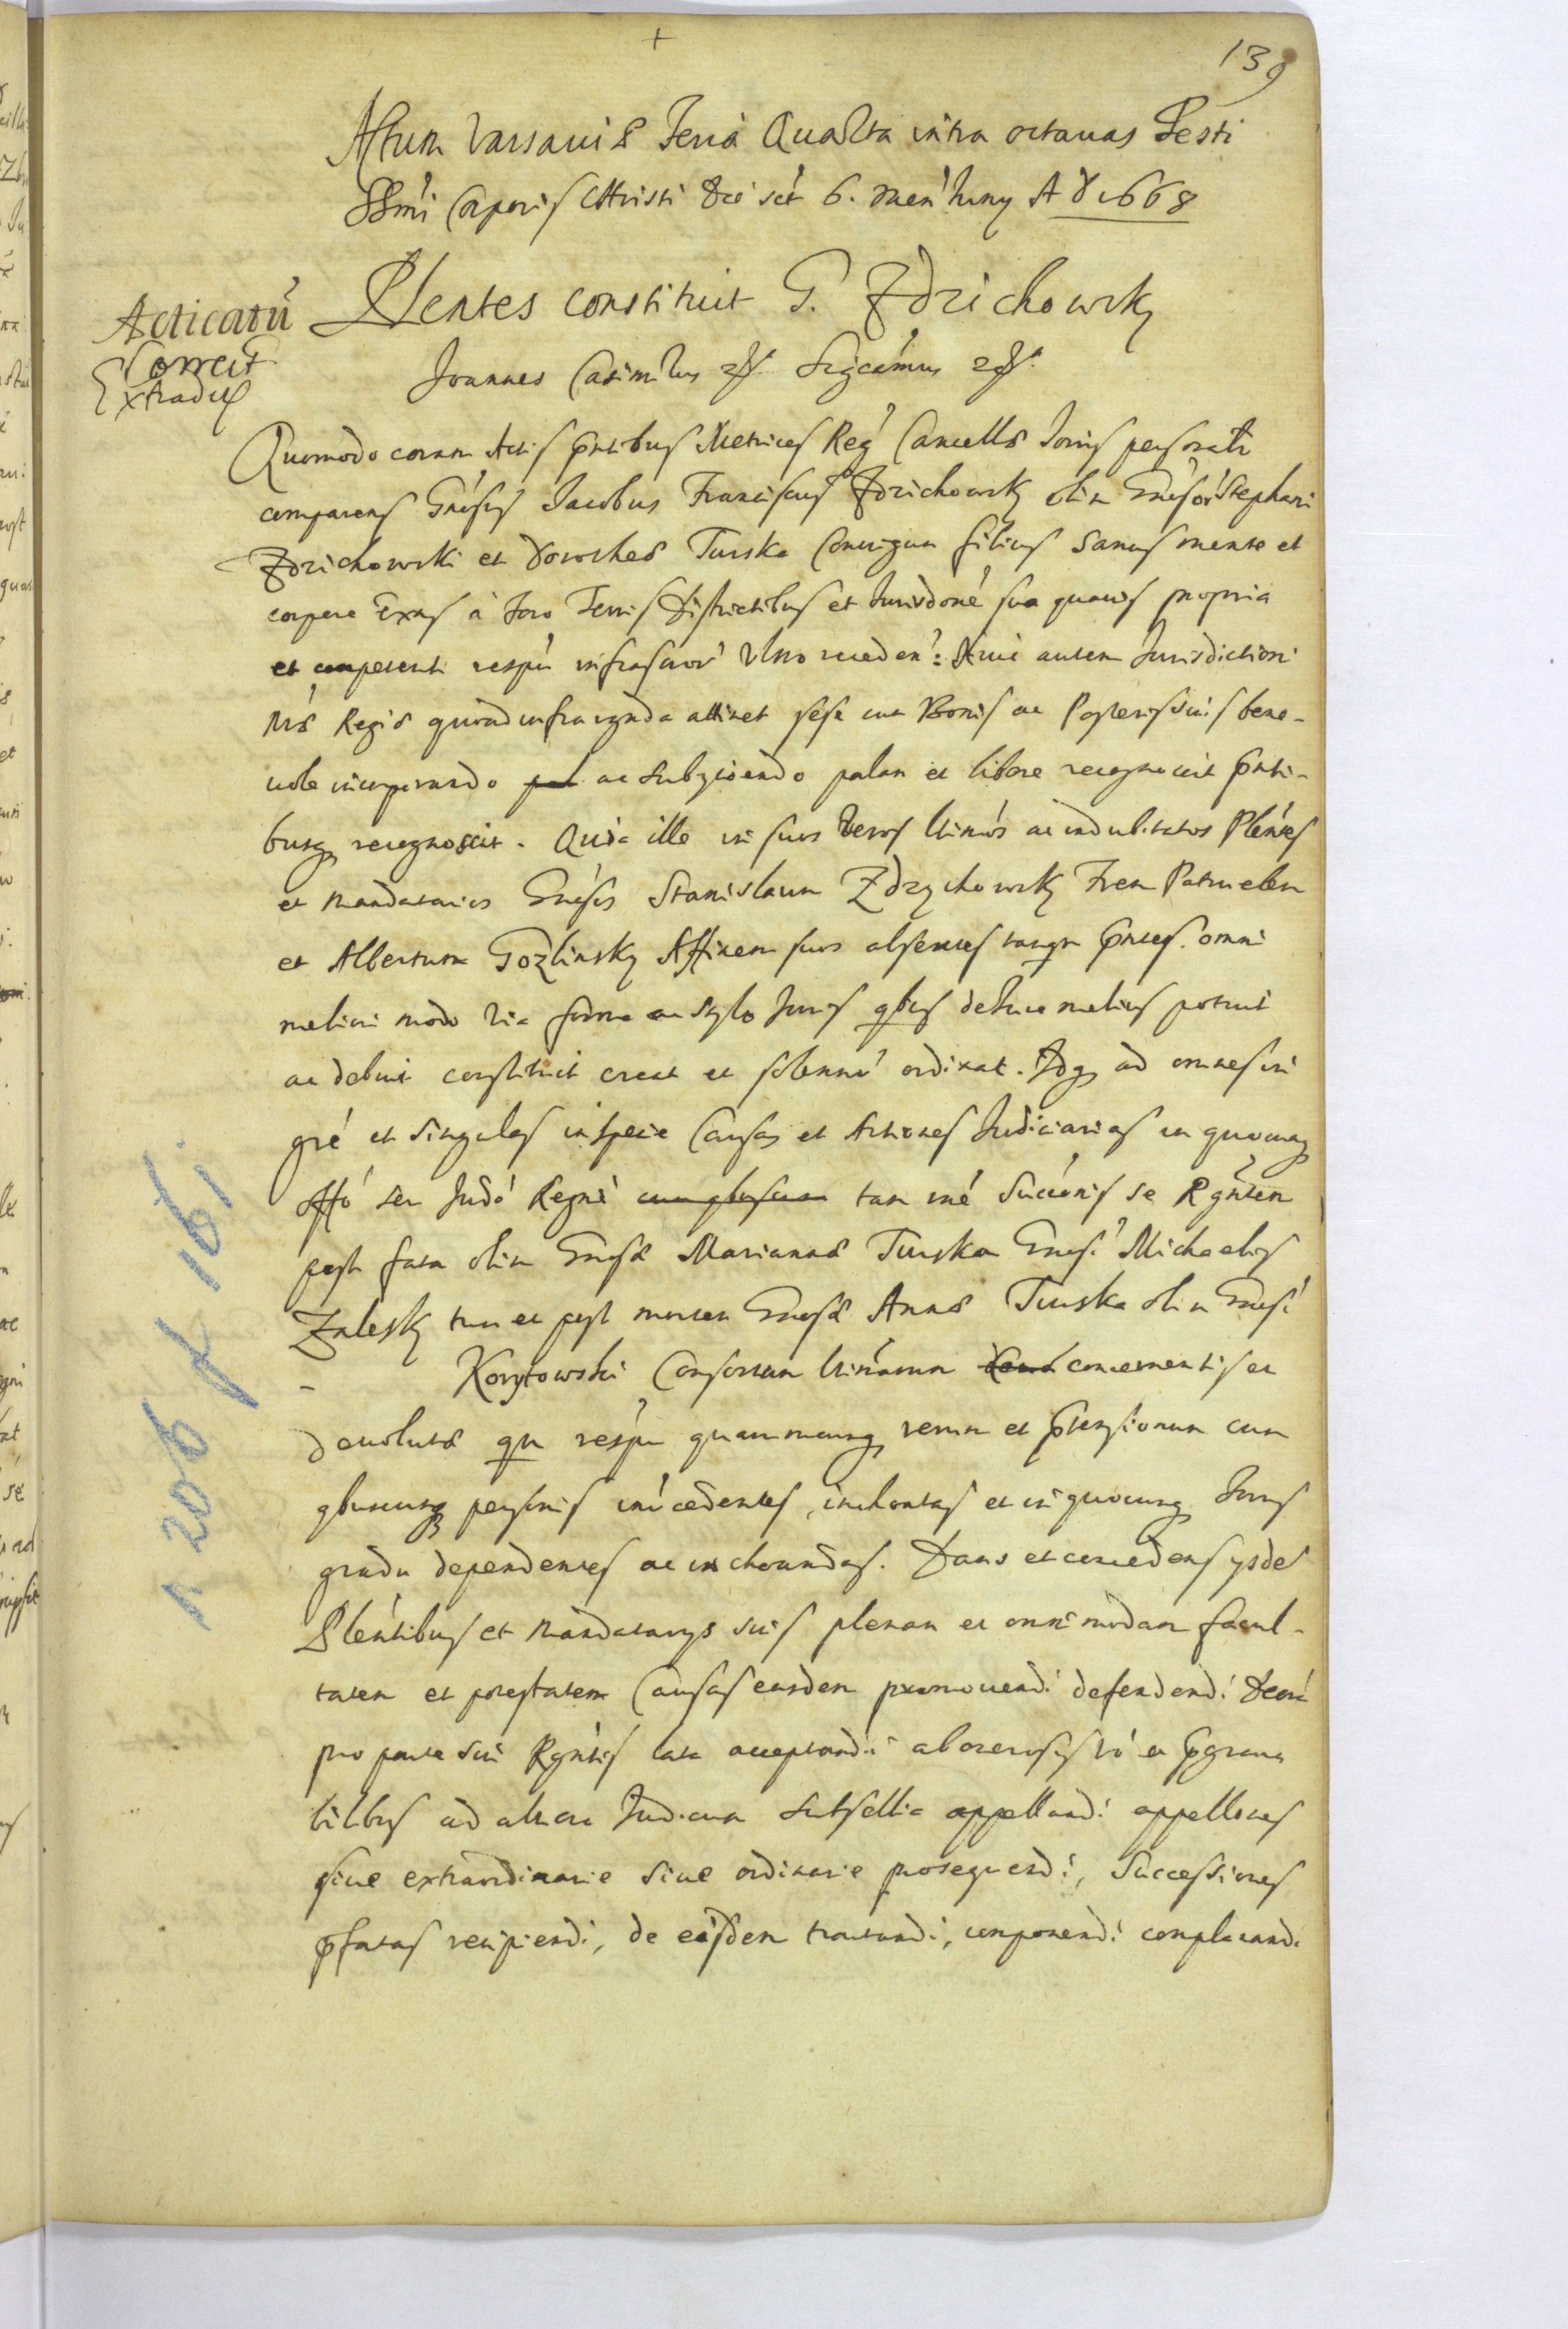 139
Actum Varsaviæ Feria Quarta intra octavas Festi
SSmi Corporis Christi die sct 6. men Juny A D 1668
Plentes constituit G. Zdrichowsky
Acticatū
Correct
Extradit
Joannes Casimirus Sigcamus
Quomodo coram Actis pntibus Metrices Reg Cancellæ Joannis personaltr
comparens Gnosus Jacobus Franciscus Zdrichowsky olim Gnosor Stephani
Zdrichowski et Dorotheæ Turska Conjugum filius sanus mente et
corpore Exns à foro Terris Districtibus et Jurisdoné sua quavis propria
et competenti respu infrascror Vltro receden: Huic autem Jurisdictioni
Mtis Regiæ quoad infra agnda attinet sese cum Bonis ac Posteris suis bene-
vole incorporando ac subyciendo palam et libere recognovit pnti-
busq recognoscit. Quia ille in suos veros ltimos ac indubitatos Plentes
et Mandatarios Gnosos Stanislaum Zdzychowsky Frem Patruelem
et Albertum Gozlinsky Affinem suos absentes tanqm pntes. omni
meliori modo via forma ac stylo Juris qbus de Jure melius potuit
ac debuit constituit creat et solenné ordinat. Idq ad omnes in
gré et singulas in specie Causas et Actiones Judiciarias in quocunq
Offó seu Judó Regni tam iné Succónis se Rgntem
post fata olim Gnosæ Mariannæ Turska Gnosi Michaelis
Zalesky tum et post mortem Gnosæ Annæ Turska olim Gnosi
- Korytowski Consortum ltimarum concernentis et
devolutæ qm respu quarumcunq rerum et ptensionum cum
qbuscunq personis intcedentes, inchoatas et in quocunq Juris
gradu dependentes ac inchoandas. Dans et concedens ysdé
Plentibus et Mandatarys suis plenam et omnimodam facul-
tatem et potestatem Causas easdem promovendi defendendi Decrá
pro parte sui Rgntis lata acceptandi ab onerosis vó et pgrava
bilibus ad altiora Judicum subsellia appellandi appellones
sive extraordinarie sive ordinarie prosequendi, Successiones
pfatas recipiendi, de eisdem tractandi, componendi complanandi
1 206 f 161